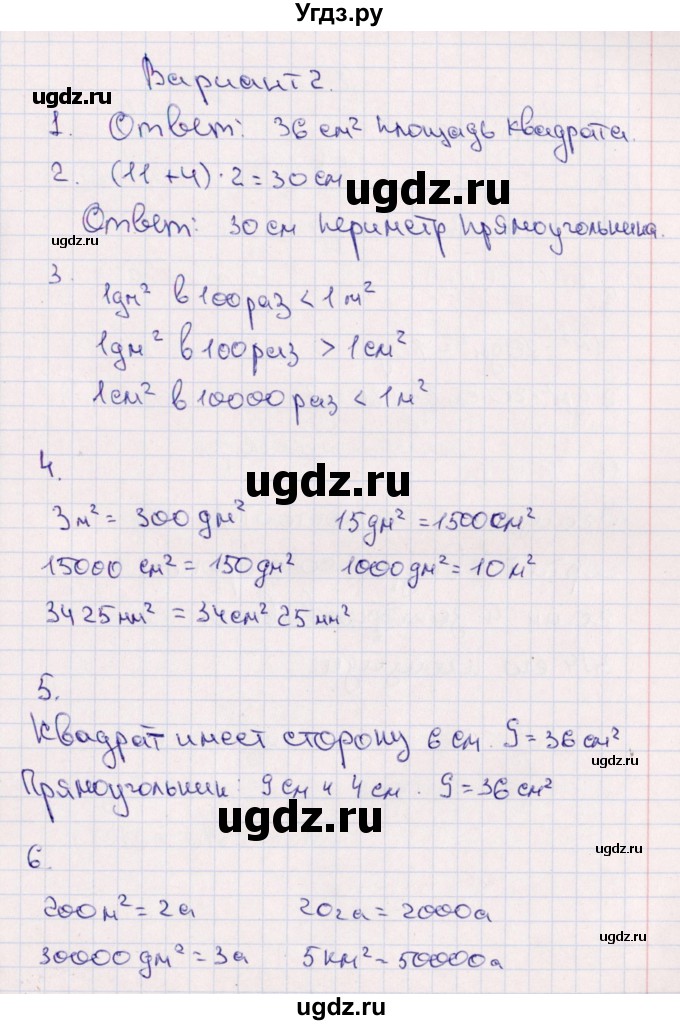 Угдз.ру
Вариант 2.
ugdz.ru
1. Ответ: 36 см² площадь квадрата.
ugdz.ru
2. (11 + 4) · 2 = 30 см
ugdz.ru
Ответ: 30 см периметр прямоугольника.
ugdz.ru
3.
1 дм² в 100 раз < 1 м²
1 дм² в 100 раз > 1 см²
1 см² в 10000 раз < 1 м²
4.
ugdz.ru
3 м² = 300 дм² 15 дм² = 1500 см²
15000 см² = 150 дм² 1000 дм² = 10 м²
3425 мм² = 34 см² 25 мм²
5.
Квадрат имеет сторону 6 см. S = 36 см².
ugdz.ru
Прямоугольник: 9 см и 4 см. S = 36 см²
ugdz.ru
6.
200 м² = 2а 20 га = 2000а
30000 дм² = 3а 5 км² = 50000а
ugdz.ru
ugdz.ru